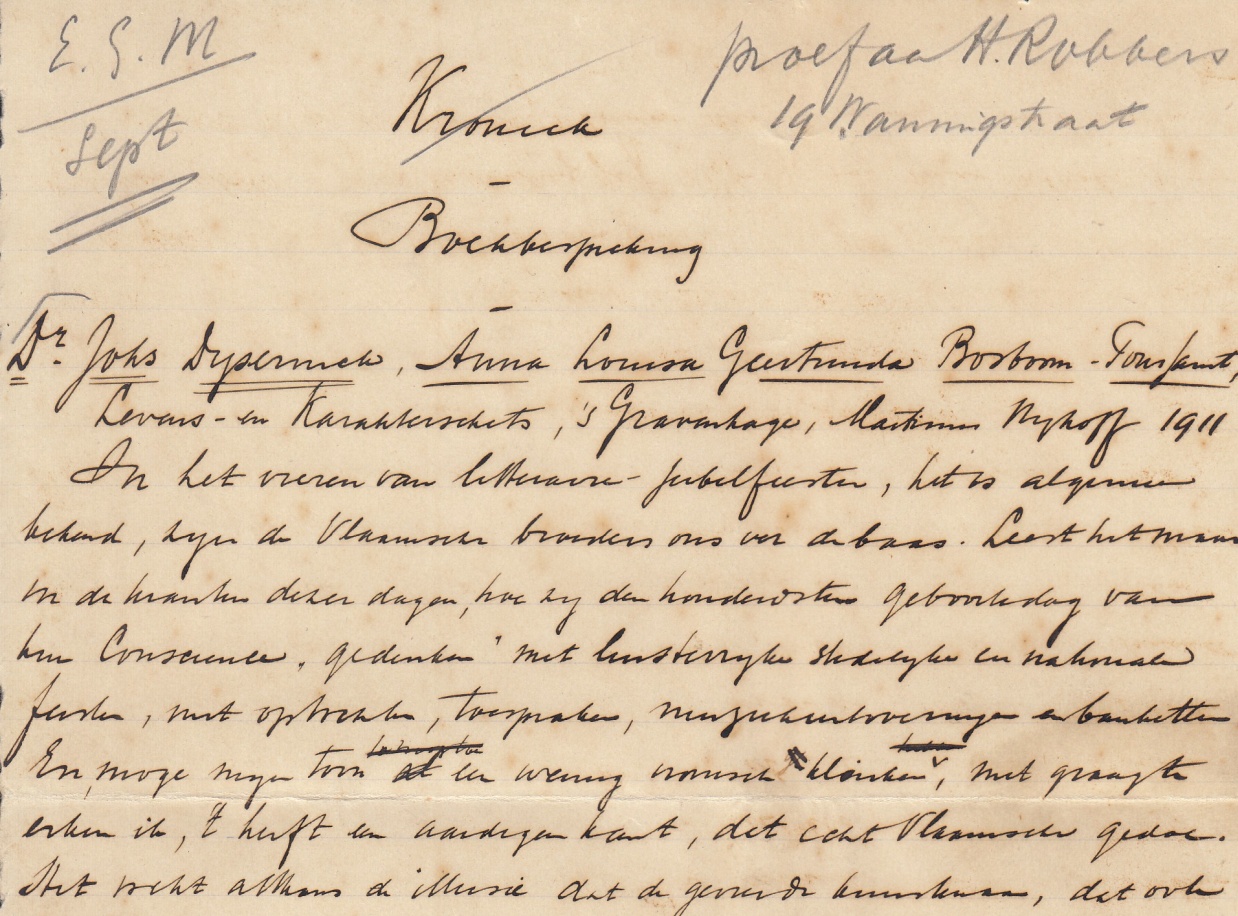 E. G. M
Sept
proef aan H. Robbers
19 P. straat
Kroniek
Boekbespreking
Dr. Johs Dyserinck, Anna Louisa Geertruida Bosboom-Toussaint,
Levens- en Karakterschets, 's Gravenhage, Martinus Nyhoff 1911
In het vieren van litteraire jubelfeesten, het is algemeen
bekend, zyn de Vlaamsche broeders ons ver de baas. Leest het maar
in de kranten dezer dagen, hoe zy den honderdsten geboortedag van
hun Conscience „gedenken” met luisterryke stedelyke en nationale
feesten, met optochten, toespraken, muziekuitvoeringen en banketten
En, moge myn toon al een weinig ironisch klinken, met graagte
erken ik, 't heeft een aardigen kant, dat echt Vlaamsche gedoe.
Het wekt althans de illusie dat de gevierde kunstenaar, dat ook